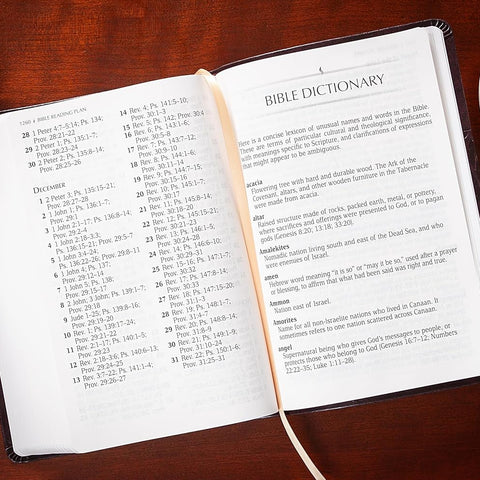 1260 ♦ BIBLE READING PLAN
28 1 Peter 4:7–5:14; Ps. 134;
Prov. 28:21-22
29 2 Peter 1; Ps. 135:1-7;
Prov. 28:23-24
30 2 Peter 2; Ps. 135:8-14;
Prov. 28:25-26
DECEMBER
1 2 Peter 3; Ps. 135:15-21;
Prov. 28:27-28
2 1 John 1; Ps. 136:1-7;
Prov. 29:1
3 1 John 2:1-17; Ps. 136:8-14;
Prov. 29:2-4
4 1 John 2:18–3:3;
Ps. 136:15-21; Prov. 29:5-7
5 1 John 3:4-
Ps. 136:22-26; Prov. 29:8-11
6 1 John 4; Ps. 137;
Prov. 29:12-14
7 1 John 5; Ps. 138;
Prov. 29:15-17
8 2 John; 3 John; Ps. 139:1-7;
Prov. 29:18
9 Jude 1-25; Ps. 139:8-16;
Prov. 29:19-20
10 Rev. 1; Ps. 139:17-24;
Prov. 29:21-22
11 Rev. 2:1-17; Ps. 140:1-5;
Prov. 29:23
12 Rev. 2:18–3:6; Ps. 140:6-13;
Prov. 29:24-25
13 Rev. 3:7-22; Ps. 141:1-4;
Prov. 29:26-27
14 Rev. 4; Ps. 141:5-10;
Prov. 30:1-3
15 Rev. 5; Ps. 142; Prov. 30:4
16 Rev. 6; Ps. 143:1-6;
Prov. 30:5-8
17 Rev. 7; Ps. 143:7-12;
Prov. 30:9-10
18 Rev. 8; Ps. 144:1-6;
Prov. 30:11-14
19 Rev. 9; Ps. 144:7-15;
Prov. 30:15-16
20 Rev. 10; Ps. 145:1-7;
Prov. 30:17
21 Rev. 11; Ps. 145:8-14;
Prov. 30:18-20
22 Rev. 12; Ps. 145:15-21;
Prov. 30:21-23
23 Rev. 13; Ps. 146:1-5;
Prov. 30:24-28
24 Rev. 14; Ps. 146:6-10;
Prov. 30:29-31
25 Rev. 15; Ps. 147:1-7;
Prov. 30:32
26 Rev. 16; Ps. 147:8-14;
Prov. 30:33
27 Rev. 17; Ps. 147:15-20;
Prov. 31:1-3
28 Rev. 18; Ps. 148:1-7;
Prov. 31:4-7
29 Rev. 20; Ps. 148:8-14;
Prov. 31:8-9
30 Rev. 21; Ps. 149:1-9;
Prov. 31:10-24
31 Rev. 22; Ps. 150:1-6;
Prov. 31:25-31
BIBLE DICTIONARY
Here is a concise lexicon of unusual names and words in the Bible.
These are terms of particular cultural and theological significance,
with meanings specific to Scripture, and clarifications of expressions
that might appear to be ambiguous.
acacia
Flowering tree with hard and durable wood. The Ark of the
Covenant, altars, and other wooden furniture in the Tabernacle
were made from acacia.
altar
Raised structure made of rocks, packed earth, metal, or pottery,
where sacrifices and offerings were presented to God, or to pagan
gods (Genesis 8:20; 13:18; 33:20).
Amalekites
Nomadic nation living south and east of the Dead Sea, and who
were enemies of Israel.
amen
Hebrew word meaning "it is so" or "may it be so," used after a prayer
or blessing, to affirm that what had been said was right and true.
Ammon
Nation east of Israel.
Amorites
Name for all non-Israelite nations who lived in Canaan. It
sometimes refers to one nation scattered across Canaan.
angel
Supernatural being who gives God's messages to people, or
protects those who belong to God (Genesis 16:7-12; Numbers
22:22-35; Luke 1:11-28).